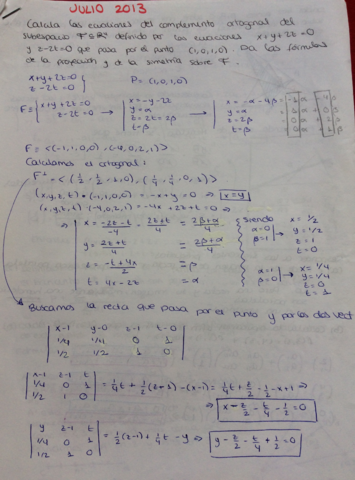 JULIO 2013
Calcula las ecuaciones del complemento ortogonal del
subespacio F ∈ R⁴ definido por las ecuaciones x+y+2z=0
y z-2t=0 que pasa por el punto (1,0,1,0). Da las fórmulas
de la proyección y de la simetría sobre F.
x+y+2z=0
z-2t=0
P=(1,0,1,0)
F≡ { x+y+2z=0
z-2t=0
x=-y-2z
y=α
z=2t=2β
t=β
x=-α-4β
y=α
z=2β
t=β
F=<(-1,1,0,0),(-4,0,2,1)>
Calculamos el ortogonal:
F⊥=<(1/2,1/2,1,0),(1/4,1/4,0,1)>
(x,y,z,t)•(-1,1,0,0)=-x+y=0 ⇒ x=y
(x,y,z,t)•(-4,0,2,1)=-4x+2z+t=0 ⇒
x=-2z-t/-4 = 2z+t/4 = 2β+α/4
y=2z+t/4 = 2β+α/4
z=-t+4x/2 = β
t=4x-2z = α
siendo
α=0
β=1
x=1/2
y=1/2
z=1
t=0
α=1
β=0
x=1/4
y=1/4
z=0
t=1
Buscamos la recta que pasa por el punto y por los dos vect
x-1 y-0 z-1 t-0
1/4 1/4 0 1
1/2 1/2 1 0
x-1 z-1 t
1/4 0 1
1/2 1 0
=1/4t+1/2(z-1)-(x-1)=1/4t+z/2-1/2-x+1 ⇒
⇒ x-z/2-t/4-1/2=0
y z-1 t
1/4 0 1
1/2 1 0
=1/2(z-1)+1/4t-y ⇒ y-z/2-t/4+1/2=0